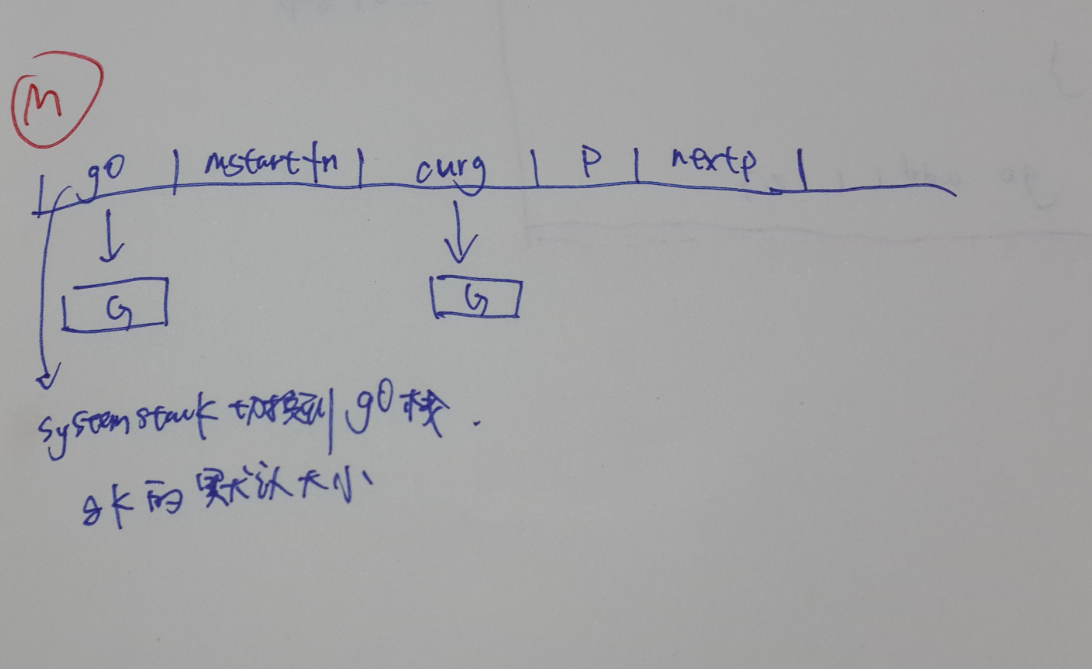 M
g0 mstartfn curg P nextp
G G
systemstack 切换到 g0 栈.
8K 的 默认大小